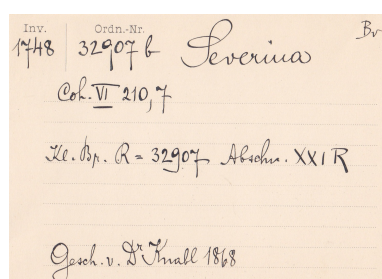 Inv. Ordn.-Nr. Br
1748 32907 b Severina
Coh. VI 210,7
Kl. Br. R = 32907 Abschn. XXI R
Gesch. v. Dr Knall 1868